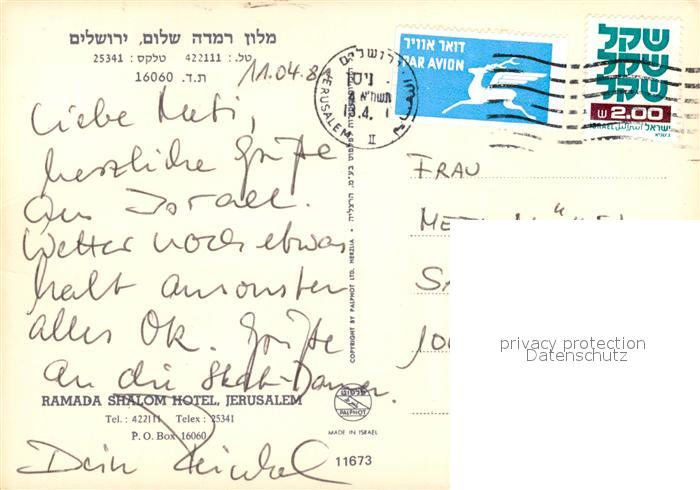 מלון רמדה שלום, ירושלים
טל.: 422111 טלקס: 25341
ת.ד. 16060
11.04.81
Liebe Meti,
herzliche Grüße
aus Israel.
Wetter noch etwas
kalt ansonsten
alles OK. Grüße
an die Skat-Damen.
RAMADA SHALOM HOTEL, JERUSALEM
Tel.: 422111 Telex: 25341
P. O. Box 16060
Dein
COPYRIGHT BY PALPHOT LTD. HERZLIA
פלפוט
PALPHOT
MADE IN ISRAEL
11673
דואר אוויר
PAR AVION
ירושלים
JERUSALEM
II
שקל
שקל
שקל
ש 2.00
ISRAEL ישראל
FRAU
privacy protection
Datenschutz